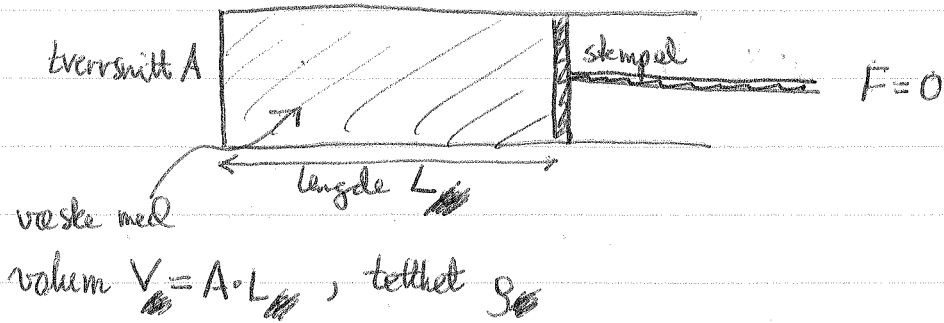 tverrsnitt A
stempel
F = 0
lengde L
væske med
volum V = A · L , tetthet ρ